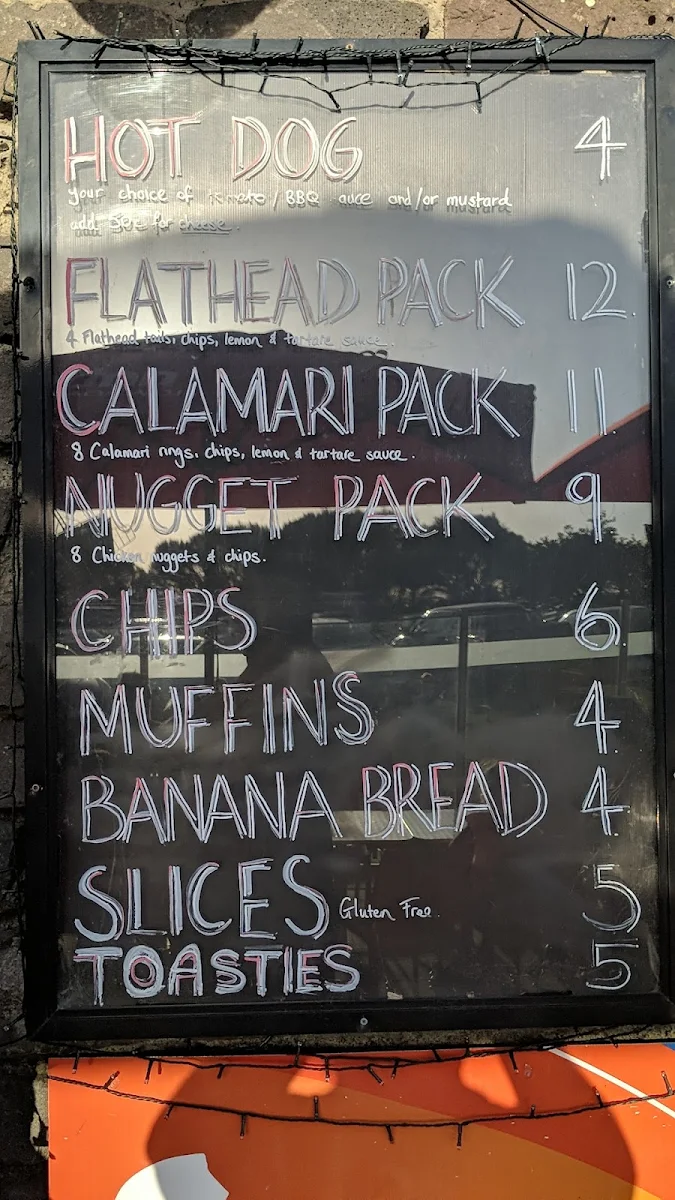 HOT DOG 4
your choice of tomato / BBQ auce and/or mustard
add 50c for cheese.
FLATHEAD PACK 12.
4 Flathead tails, chips, lemon & tartare sauce.
CALAMARI PACK 11.
8 Calamari rings, chips, lemon & tartare sauce.
NUGGET PACK 9
8 Chicken nuggets & chips.
CHIPS 6.
MUFFINS 4.
BANANA BREAD 4.
SLICES Gluten Free. 5
TOASTIES 5